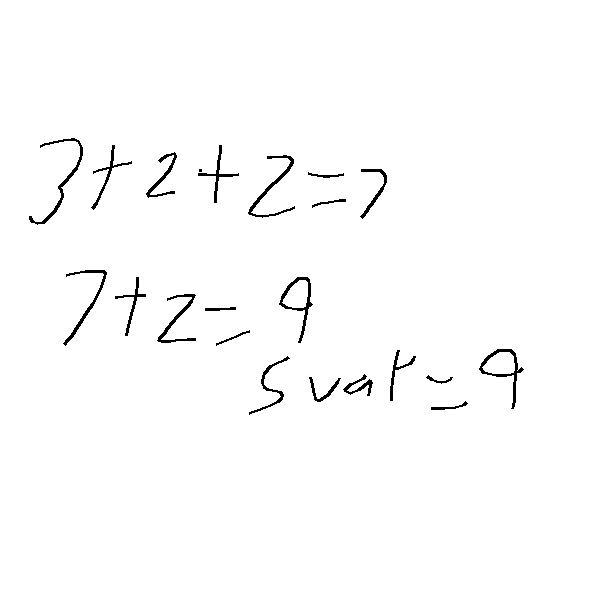 3+2+2=7
7+2=9
svar=9